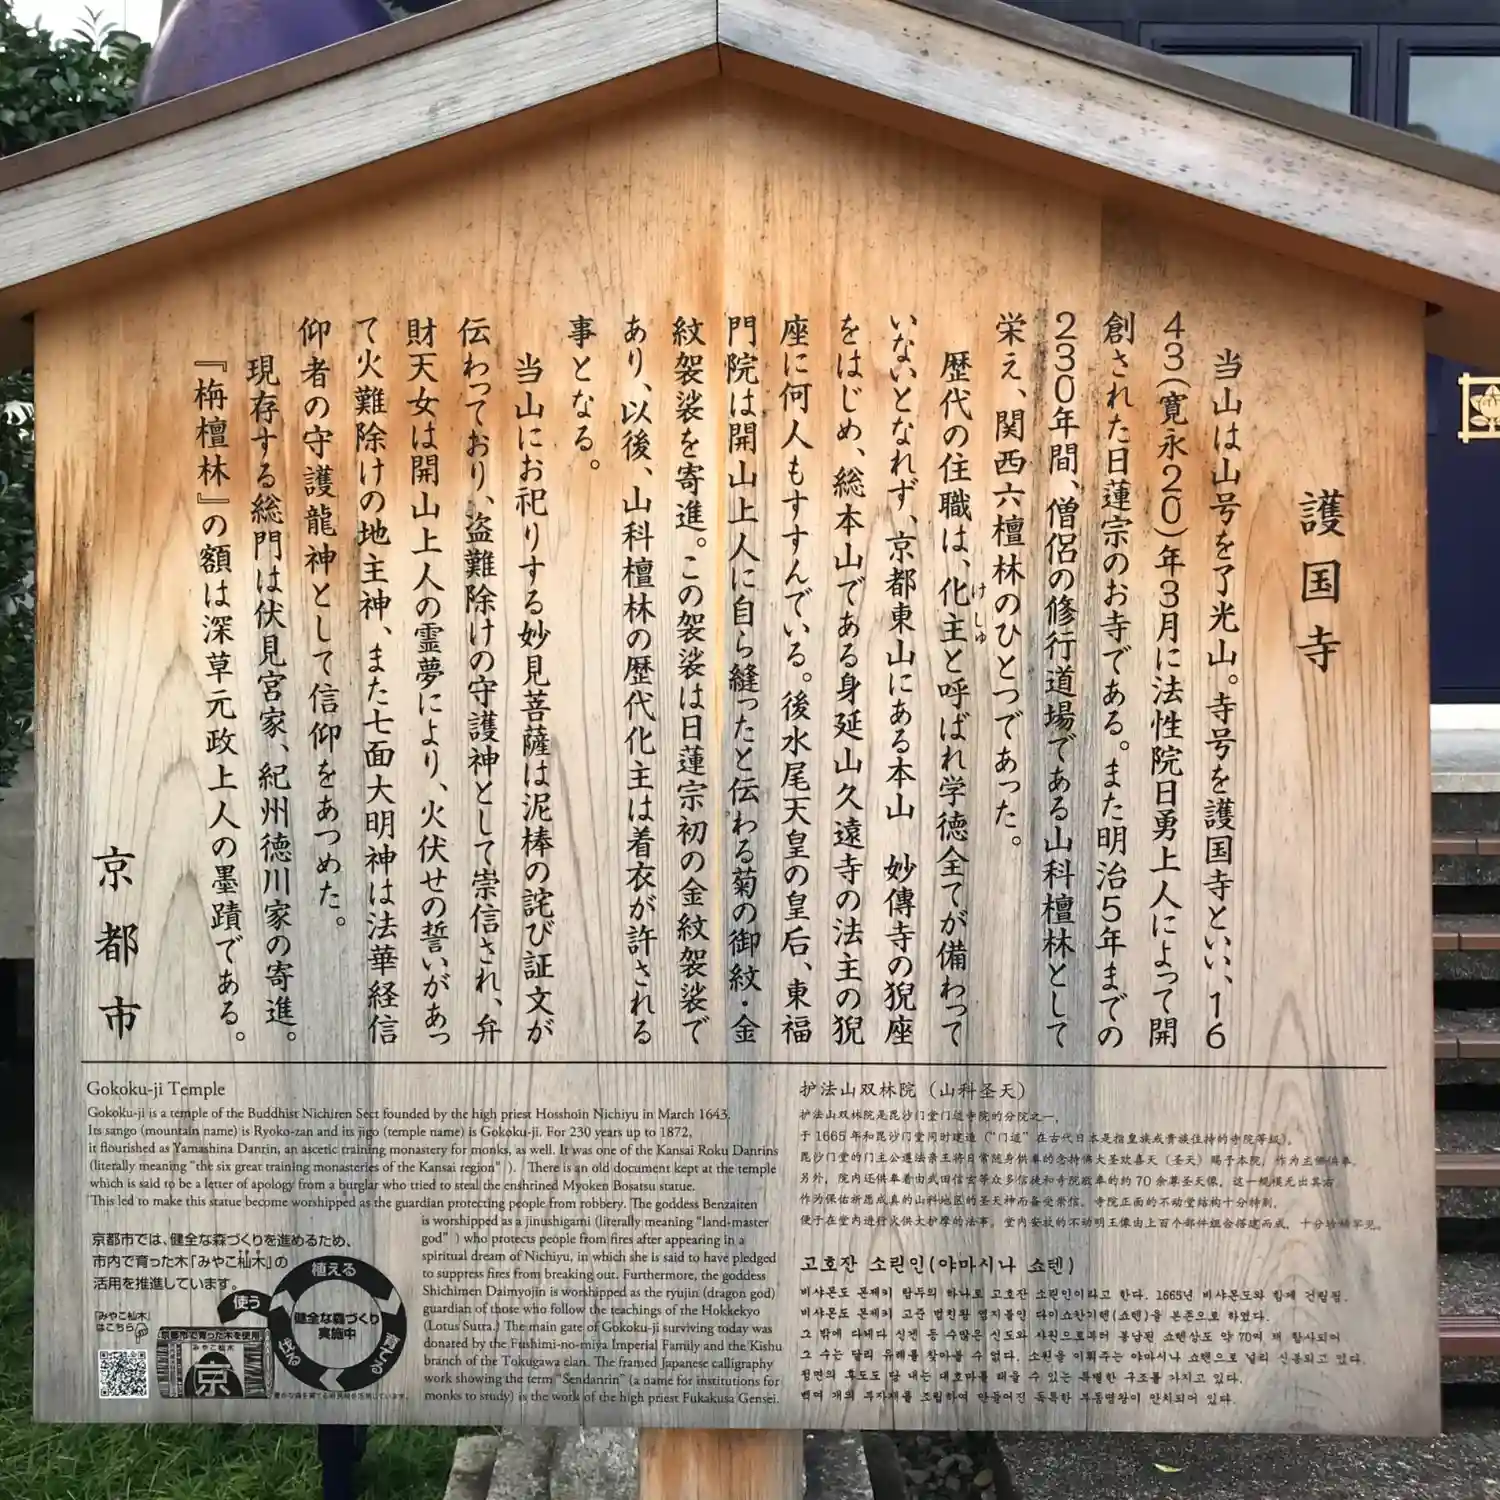 護国寺
当山は山号を了光山。寺号を護国寺といい、16
43(寛永20)年3月に法性院日勇上人によって開
創された日蓮宗のお寺である。また明治5年までの
230年間、僧侶の修行道場である山科檀林として
栄え、関西六檀林のひとつであった。
歴代の住職は、化主と呼ばれ学徳全てが備わって
けしゅ
いないとなれず、京都東山にある本山 妙傳寺の猊座
をはじめ、総本山である身延山久遠寺の法主の猊
座に何人もすすんでいる。後水尾天皇の皇后、東福
門院は開山上人に自ら縫ったと伝わる菊の御紋・金
紋袈裟を寄進。この袈裟は日蓮宗初の金紋袈裟で
あり、以後、山科檀林の歴代化主は着衣が許される
事となる。
当山にお祀りする妙見菩薩は泥棒の詫び証文が
伝わっており、盗難除けの守護神として崇信され、弁
財天女は開山上人の霊夢により、火伏せの誓いがあっ
て火難除けの地主神、また七面大明神は法華経信
仰者の守護龍神として信仰をあつめた。
現存する総門は伏見宮家、紀州徳川家の寄進。
『栴檀林』の額は深草元政上人の墨蹟である。
京都市
Gokoku-ji Temple
Gokoku-ji is a temple of the Buddhist Nichiren Sect founded by the high priest Hosshoin Nichiyu in March 1643.
Its sango (mountain name) is Ryoko-zan and its jigo (temple name) is Gokoku-ji. For 230 years up to 1872,
it flourished as Yamashina Danrin, an ascetic training monastery for monks, as well. It was one of the Kansai Roku Danrins
(literally meaning "the six great training monasteries of the Kansai region" ). There is an old document kept at the temple
which is said to be a letter of apology from a burglar who tried to steal the enshrined Myoken Bosatsu statue.
This led to make this statue become worshipped as the guardian protecting people from robbery. The goddess Benzaiten
is worshipped as a jinushigami (literally meaning "land-master
god" ) who protects people from fires after appearing in a
spiritual dream of Nichiyu, in which she is said to have pledged
to suppress fires from breaking out. Furthermore, the goddess
Shichimen Daimyojin is worshipped as the ryujin (dragon god)
guardian of those who follow the teachings of the Hokkekyo
(Lotus Sutra.) The main gate of Gokoku-ji surviving today was
donated by the Fushimi-no-miya Imperial Family and the Kishu
branch of the Tokugawa clan. The framed Japanese calligraphy
work showing the term "Sendanrin" (a name for institutions for
monks to study) is the work of the high priest Fukakusa Gensei.
京都市では、健全な森づくりを進めるため、
市内で育った木「みやこ杣木」の
活用を推進しています。
「みやこ杣木」
はこちら
使う
植える
育てる
伐る
健全な森づくり
実施中
京都市で育った木を使用
みやこ杣木
京
护法山双林院（山科圣天）
护法山双林院是毘沙门堂门迹寺院的分院之一，
于1665年和毘沙门堂同时建造（"门迹"在古代日本是指皇族或贵族住持的寺院等级）。
毘沙门堂的门主公遵法亲王将日常随身供奉的念持佛大圣欢喜天（圣天）赐于本院，作为主佛供奉。
另外，院内还供奉着由武田信玄等众多信徒和寺院敬奉的约70余尊圣天像，这一规模无出其右。
作为保佑祈愿成真的山科地区的圣天神而备受崇信。寺院正面的不动堂结构十分特别，
便于在堂内进行火供大护摩的法事。堂内安放的不动明王像由上百个部件组合搭建而成，十分珍稀罕见。
고호잔 소린인(야마시나 쇼텐)
비샤몬도 몬제키 탑두의 하나로 고호잔 소린인이라고 한다. 1665년 비샤몬도와 함께 건립됨.
비샤몬도 몬제키 고준 법친왕 염지불인 다이쇼칸기텐(쇼텐)을 본존으로 하였다.
그 밖에 다케다 신겐 등 수많은 신도와 사원으로부터 봉납된 쇼텐상도 약 70여 채 합사되어
그 수는 달리 유례를 찾아볼 수 없다. 소원을 이뤄주는 야마시나 쇼텐으로 널리 신봉되고 있다.
정면의 후도도 당 내는 대호마를 태울 수 있는 특별한 구조를 가지고 있다.
백여 개의 부자재를 조립하여 만들어진 독특한 부동명왕이 안치되어 있다.